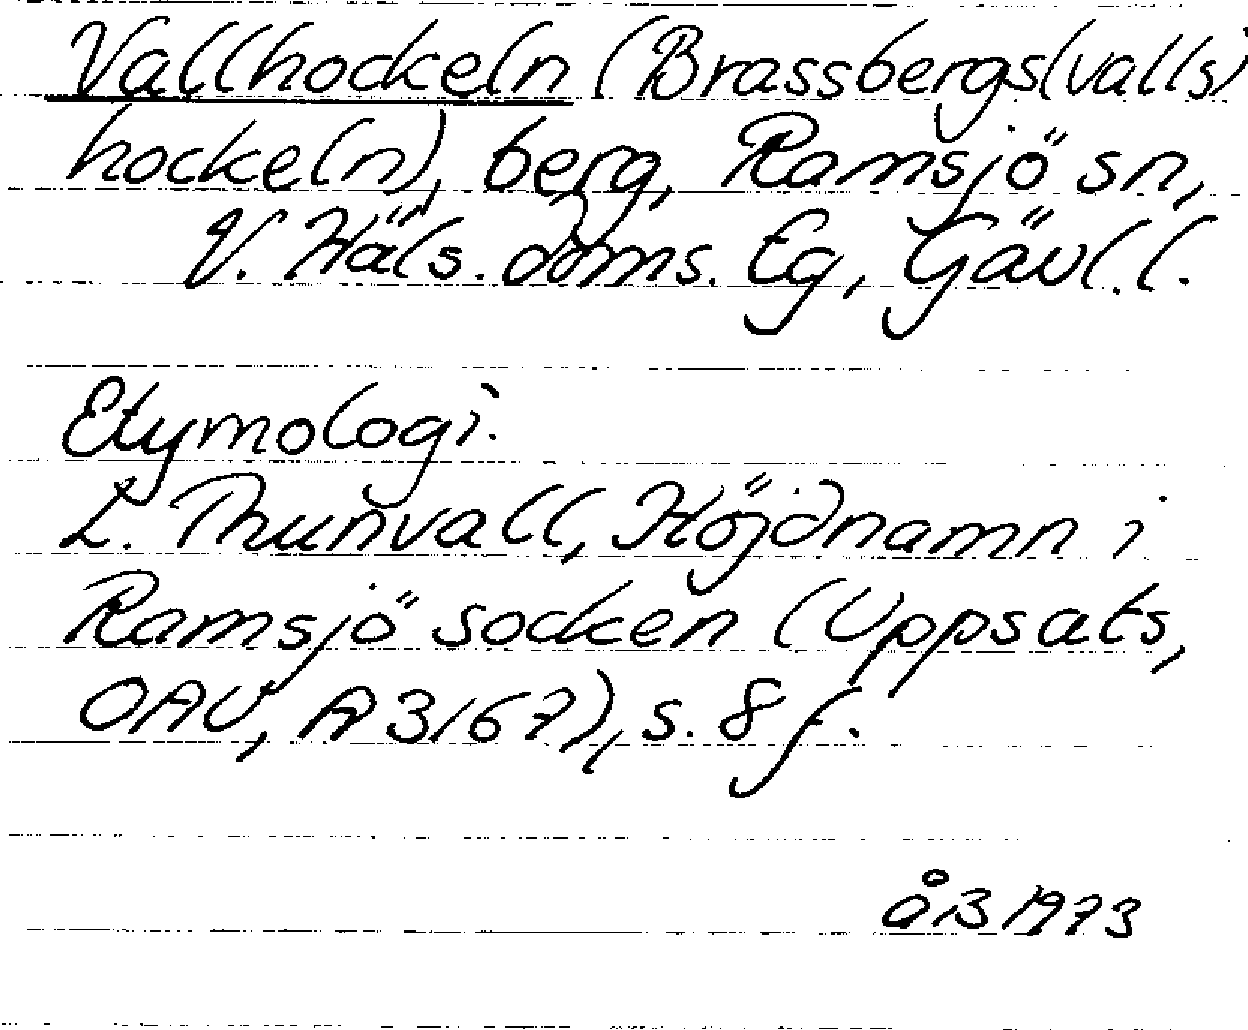 Vallhockeln (Brassbergs(valls)
hockeln), berg, Ramsjö sn,
V. Häls. doms. Eg, Gävl. l.
Etymologi.
L. Thunvall, Höjdnamn i
Ramsjö socken (Uppsats,
OAU, A 3167), s. 8 f.
åB 1973